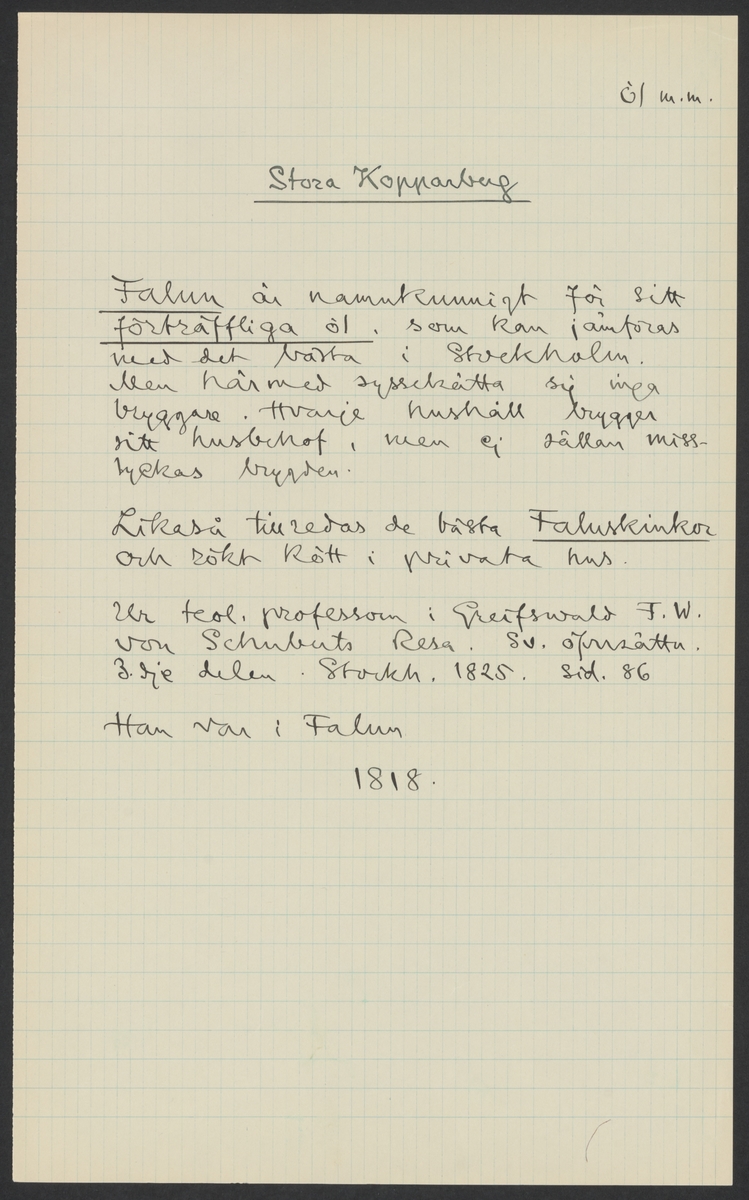 Öl m.m.
Stora Kopparberg
Falun är namnkunnigt för sitt
förträffliga öl, som kan jämföras
med det bästa i Stockholm.
Men härmed sysselsätta sig inga
bryggare. Hvarje hushåll brygger
sitt husbehof, men ej sällan miss-
lyckas brygden.
Likaså tillredas de bästa Faluskinkor
och rökt kött i privata hus.
Ur teol. professorn i Greifswald F. W.
von Schuberts Resa. Sv. öfversättn.
3.dje delen. Stockh. 1825. sid. 86
Han var i Falun
1818.